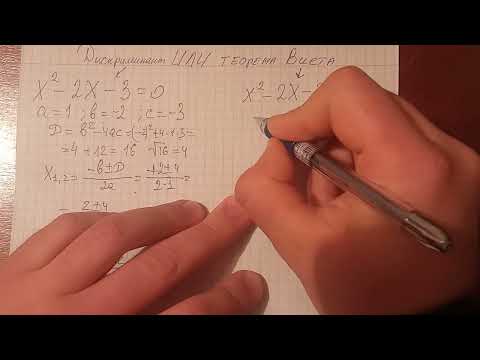 Дискриминант ИЛИ теорема Виета
x² - 2x - 3 = 0
a = 1 ; в = -2 , c = -3
D = в² - 4ac = (-2)² + 4 · 1 · 3 =
= 4 + 12 = 16 √16 = 4
x₁,₂ = (-в ± D) / 2a = (+2 ± 4) / (2·1) =
= 2 ± 4
x² - 2x -